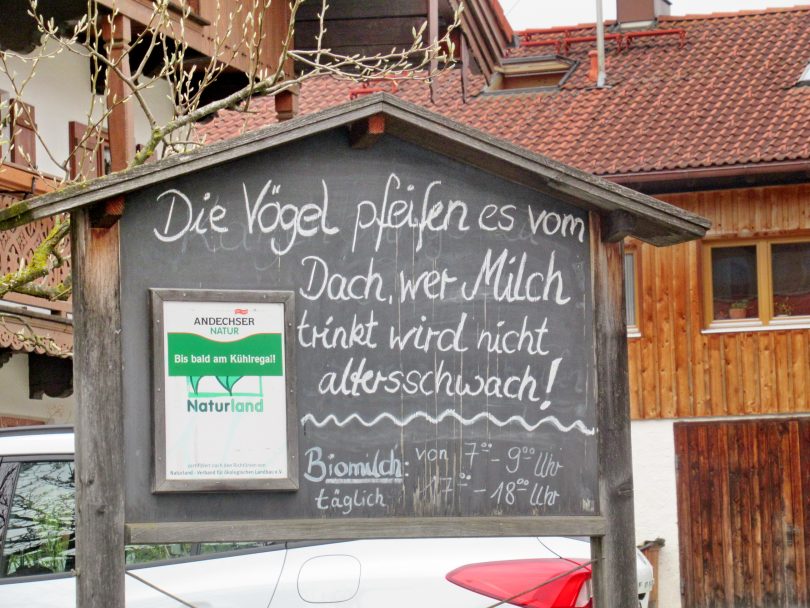 Die Vögel pfeifen es vom
Dach, wer Milch
trinkt wird nicht
altersschwach!
ANDECHSER
NATUR
Bis bald am Kühlregal!
Naturland
zertifiziert nach den Richtlinien von
Naturland - Verband für ökologischen Landbau e.V.
Biomilch: von 7⁰⁰ - 9⁰⁰ Uhr
täglich 17⁰⁰ - 18⁰⁰ Uhr